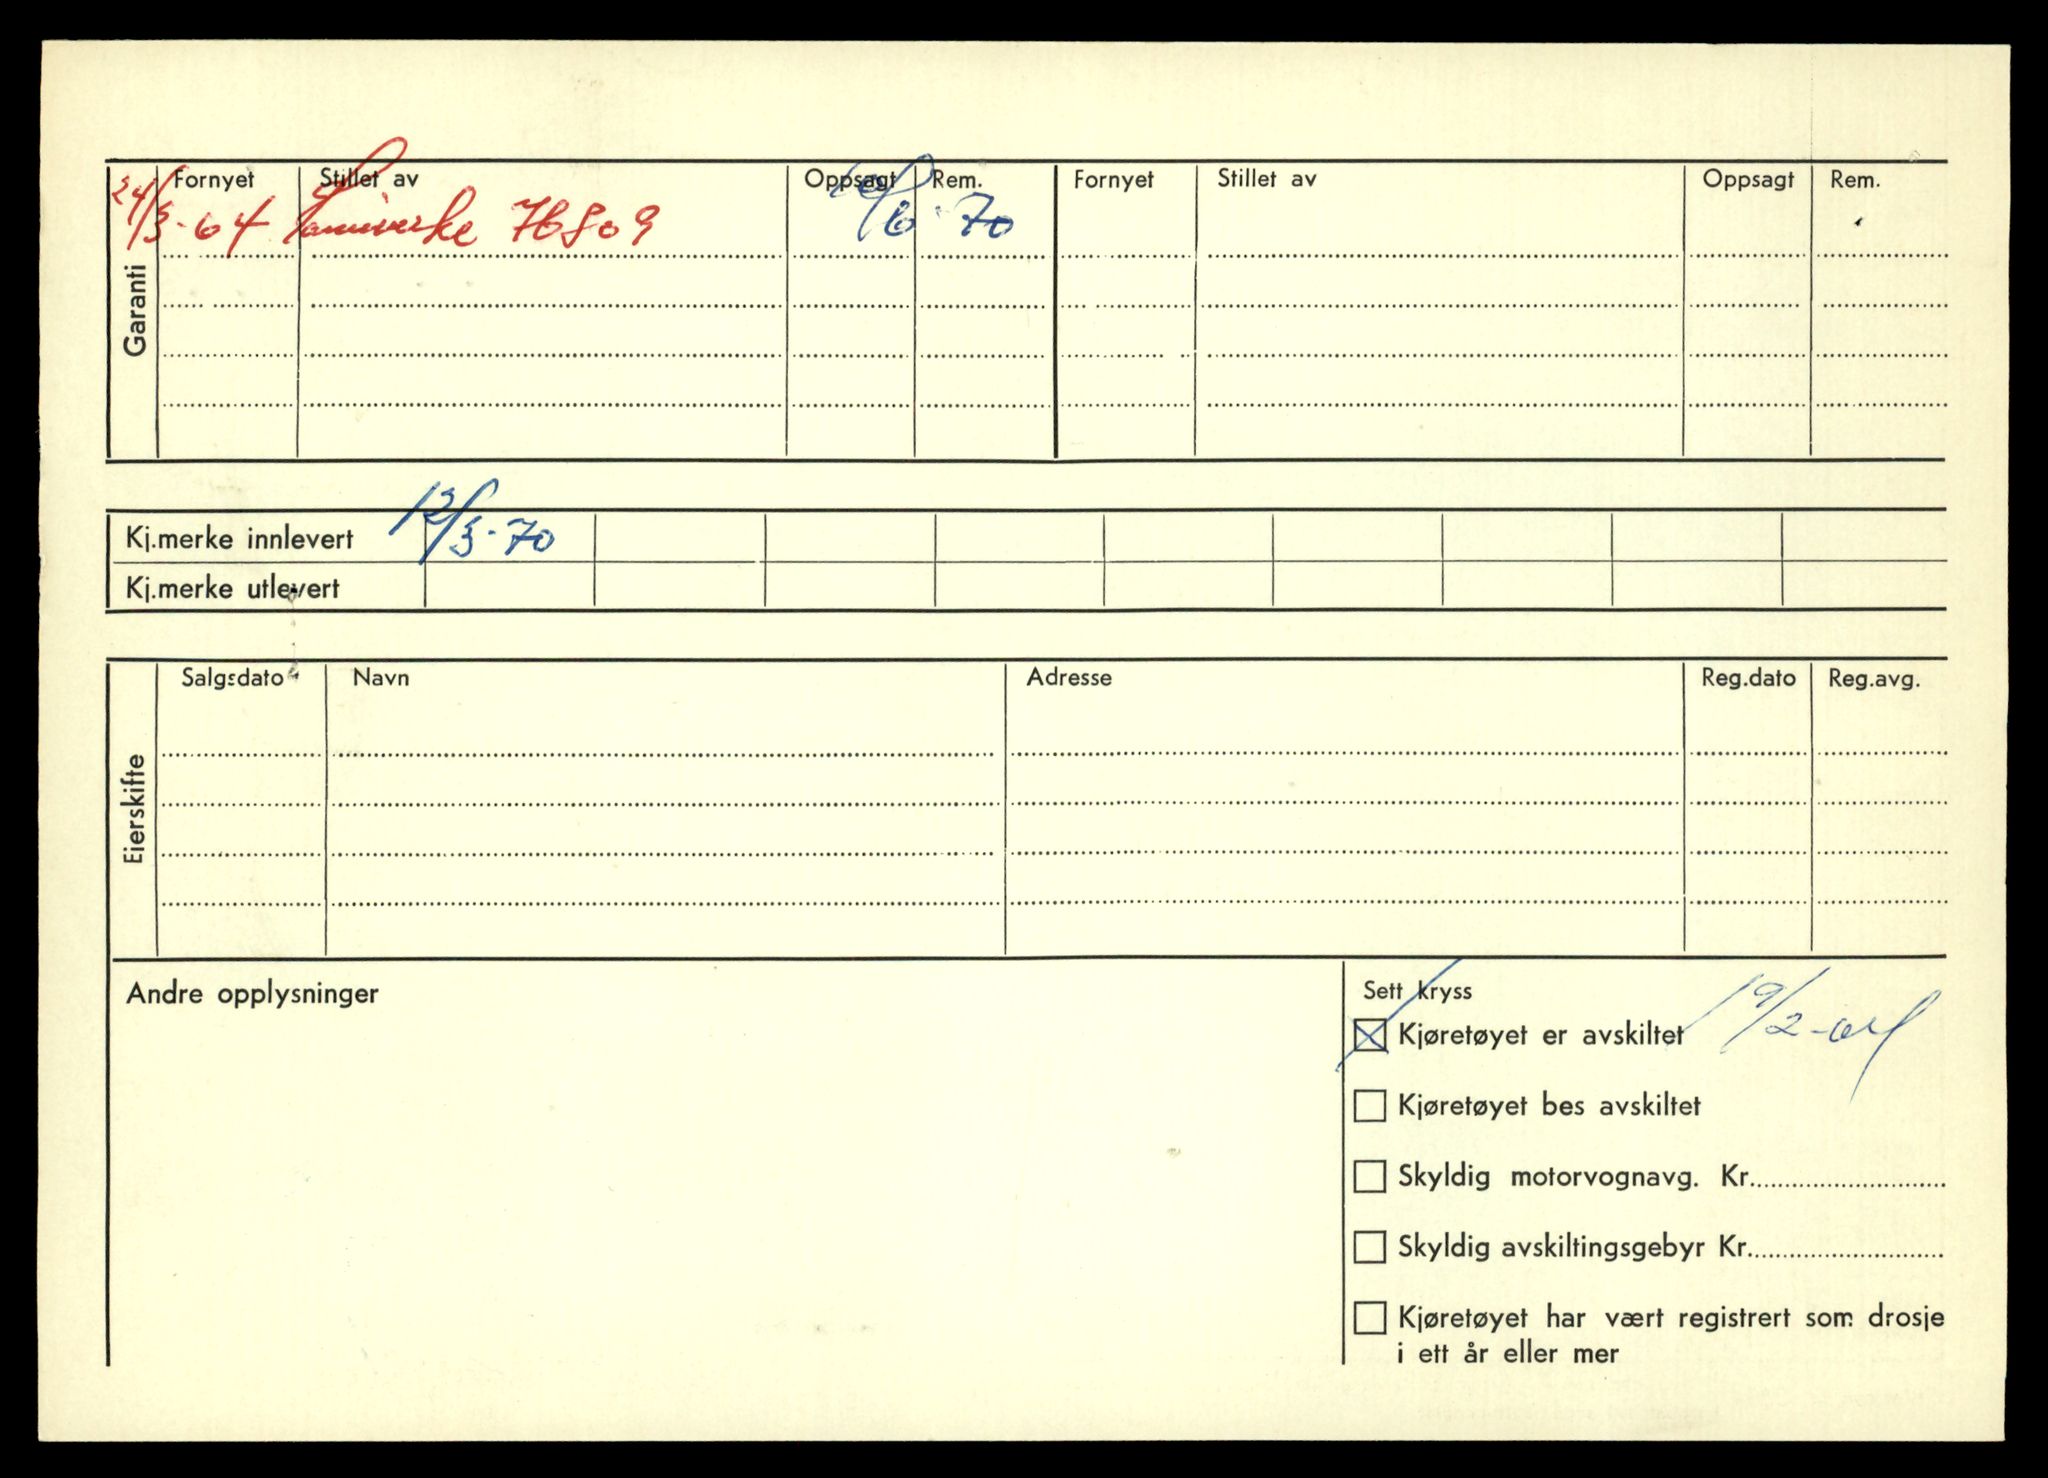 Garanti
Fornyet Stillet av Oppsagt Rem. Fornyet Stillet av Oppsagt Rem.
24/3-64 Samvirke 76809 /6-70
Kj.merke innlevert 12/3-70
Kj.merke utlevert
Eierskifte
Salgsdato Navn Adresse Reg.dato Reg.avg.
Andre opplysninger
Sett kryss
Kjøretøyet er avskiltet 19/2-
Kjøretøyet bes avskiltet
Skyldig motorvognavg. Kr.
Skyldig avskiltingsgebyr Kr.
Kjøretøyet har vært registrert som drosje
i ett år eller mer